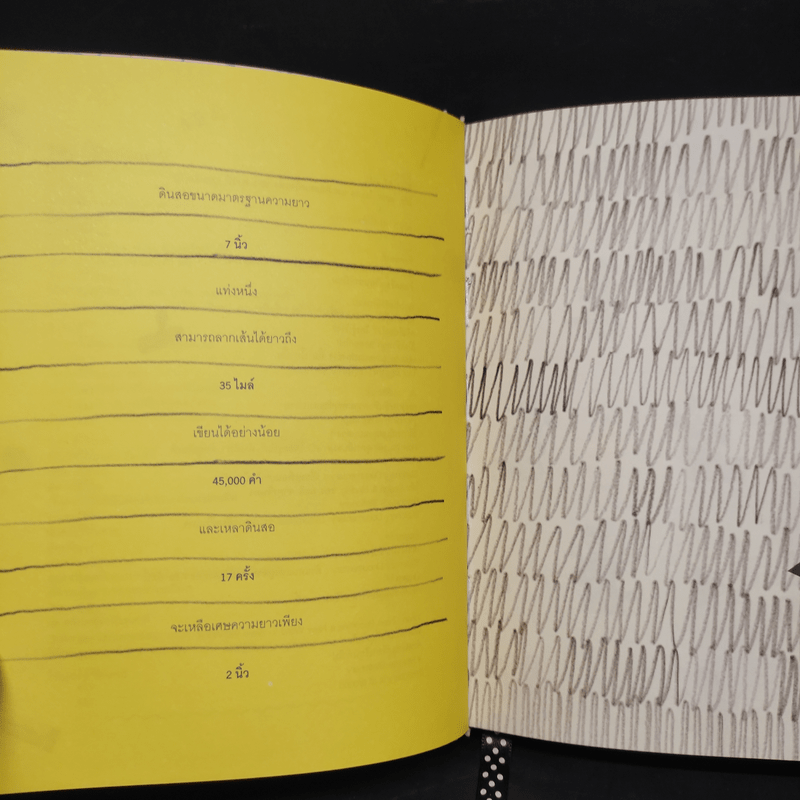 ดินสอขนาดมาตรฐานความยาว
7 นิ้ว
แท่งหนึ่ง
สามารถลากเส้นได้ยาวถึง
35 ไมล์
เขียนได้อย่างน้อย
45,000 คำ
และเหลาดินสอ
17 ครั้ง
จะเหลือเศษความยาวเพียง
2 นิ้ว